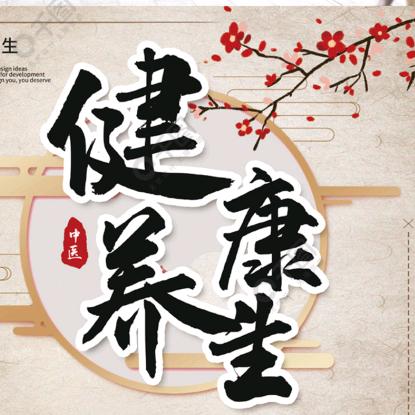 生
sign ideas
for development
gn you, you deserve
健康
养生
中医